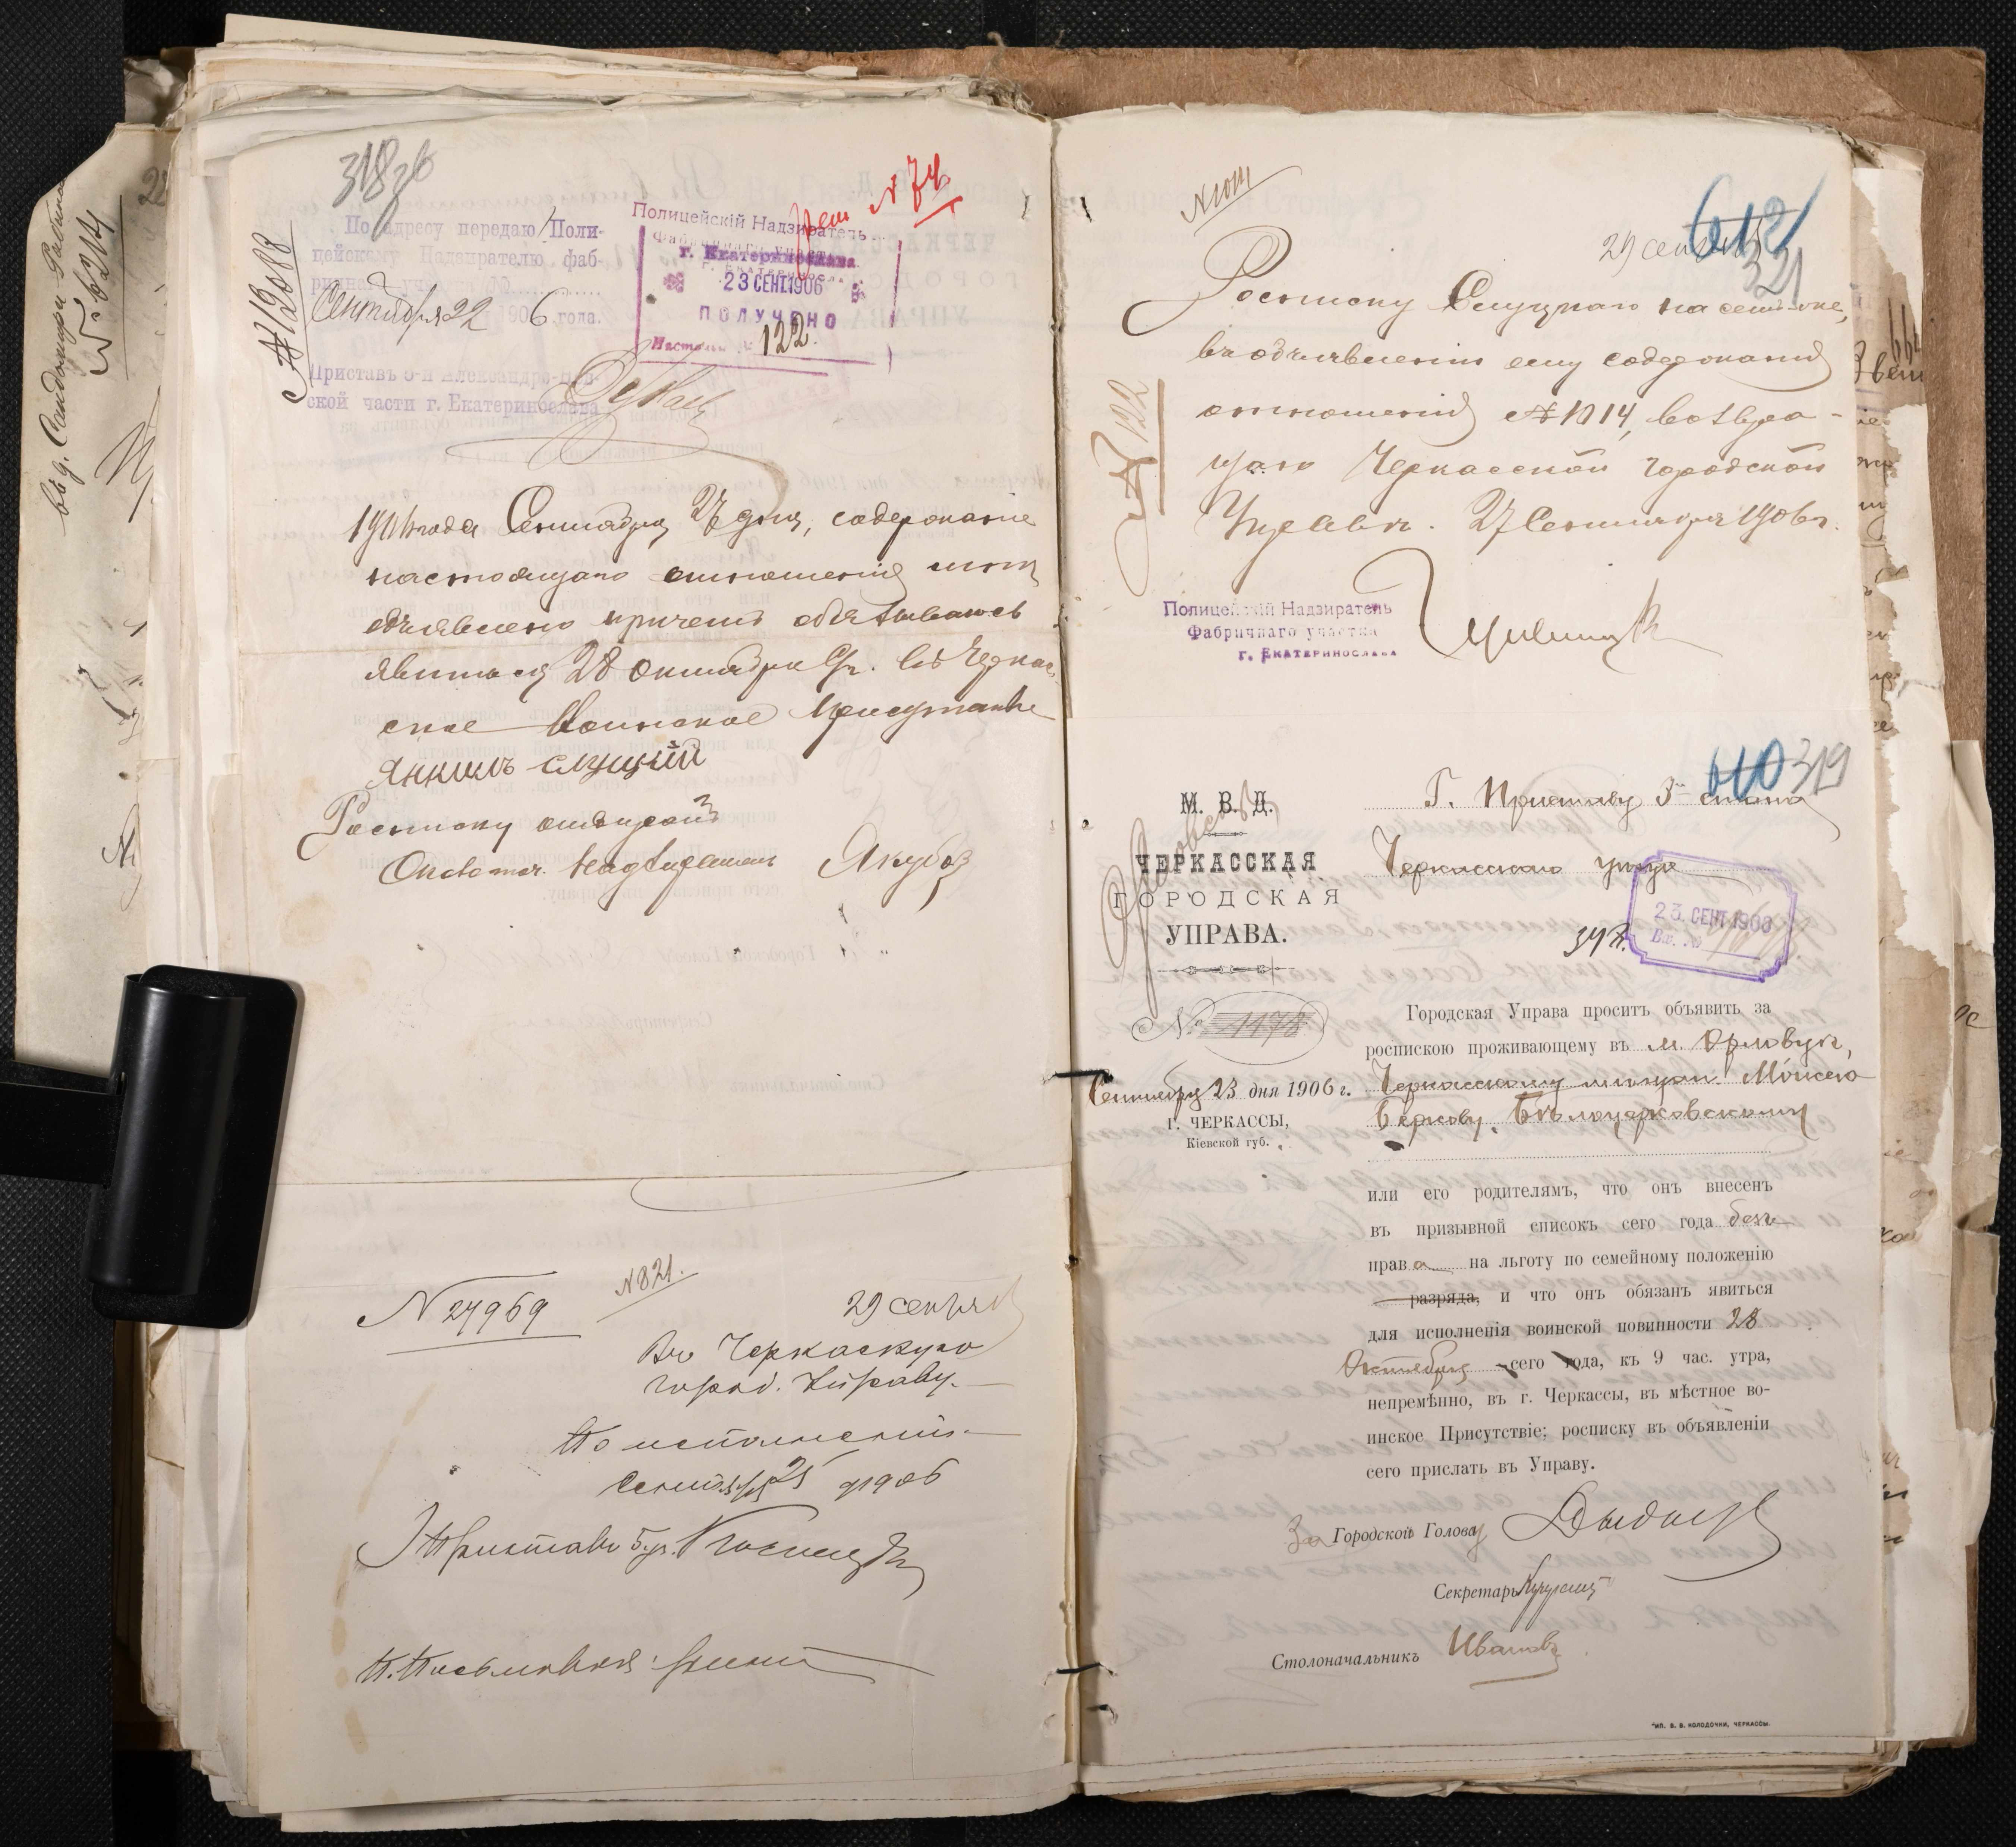 въ г. Сандомири
№ 6214
318
№ 12088
По адресу передаю Поли-
цейскому Надзирателю фаб-
Сентября 22 1906 года.
Приставъ 3-й Александро-Нев-
ской части г. Екатеринослава
№ 74
Полицейскій Надзиратель
Фабричнаго участка
г. Екатеринослава
23 СЕНТ. 1906
ПОЛУЧЕНО
122.
1906 года Сентября 27 дня, содержаніе
настоящаго отношенія мнѣ
объявлено при чемъ обязываюсь
явиться 28 Октября с/г. въ Черкас-
ское Воинское Присутствіе
Янкиль Слуцкій
Росписку отобралъ
Околоточ. Надзиратель Якубов
N 27969
N 821.
29 сентября
Въ Черкаскую
город. Управу.
По исполненіи.
Сентября 25 д 1906
Приставъ 5 уч.
N 1014
612
321
29 сентября
Росписку Слуцкаго на семъ же,
въ объявленіи ему содержанія
отношенія № 1014, возвра-
щаю Черкасской Городской
Управѣ. 27 Сентября 1906 г.
№ 122
Полицейскій Надзиратель
Фабричнаго участка
г. Екатеринослава
610 319
М. В. Д.
ЧЕРКАССКАЯ
ГОРОДСКАЯ
УПРАВА.
№ 1178
Сентября 23 дня 1906 г.
г. ЧЕРКАССЫ,
Кіевской губ.
Г. Приставу 3го стана
Черкасскаго уѣзда
23. СЕНТ. 1906
Вх. №
Городская Управа проситъ объявить за
роспискою проживающему въ м. Орловцѣ,
Черкасскому мѣщан. Мойсею
Беркову Бѣлоцерковскому
или его родителямъ, что онъ внесенъ
въ призывной списокъ сего года безъ
права на льготу по семейному положенію
разряда, и что онъ обязанъ явиться
для исполненія воинской повинности 28
Октября сего года, къ 9 час. утра,
непремѣнно, въ г. Черкассы, въ мѣстное во-
инское Присутствіе; росписку въ объявленіи
сего прислать въ Управу.
За Городской Голова
Секретарь
Столоначальникъ Иванов
ТИП. В. В. КОЛОДОЧКИ, ЧЕРКАССЫ.